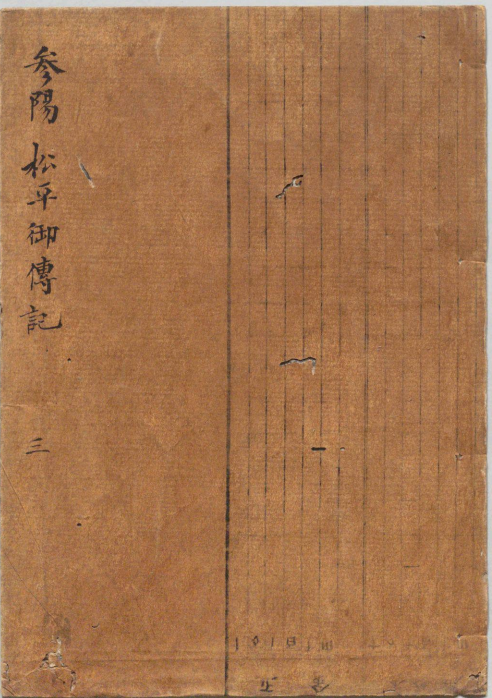 参陽 松平御傳記 三